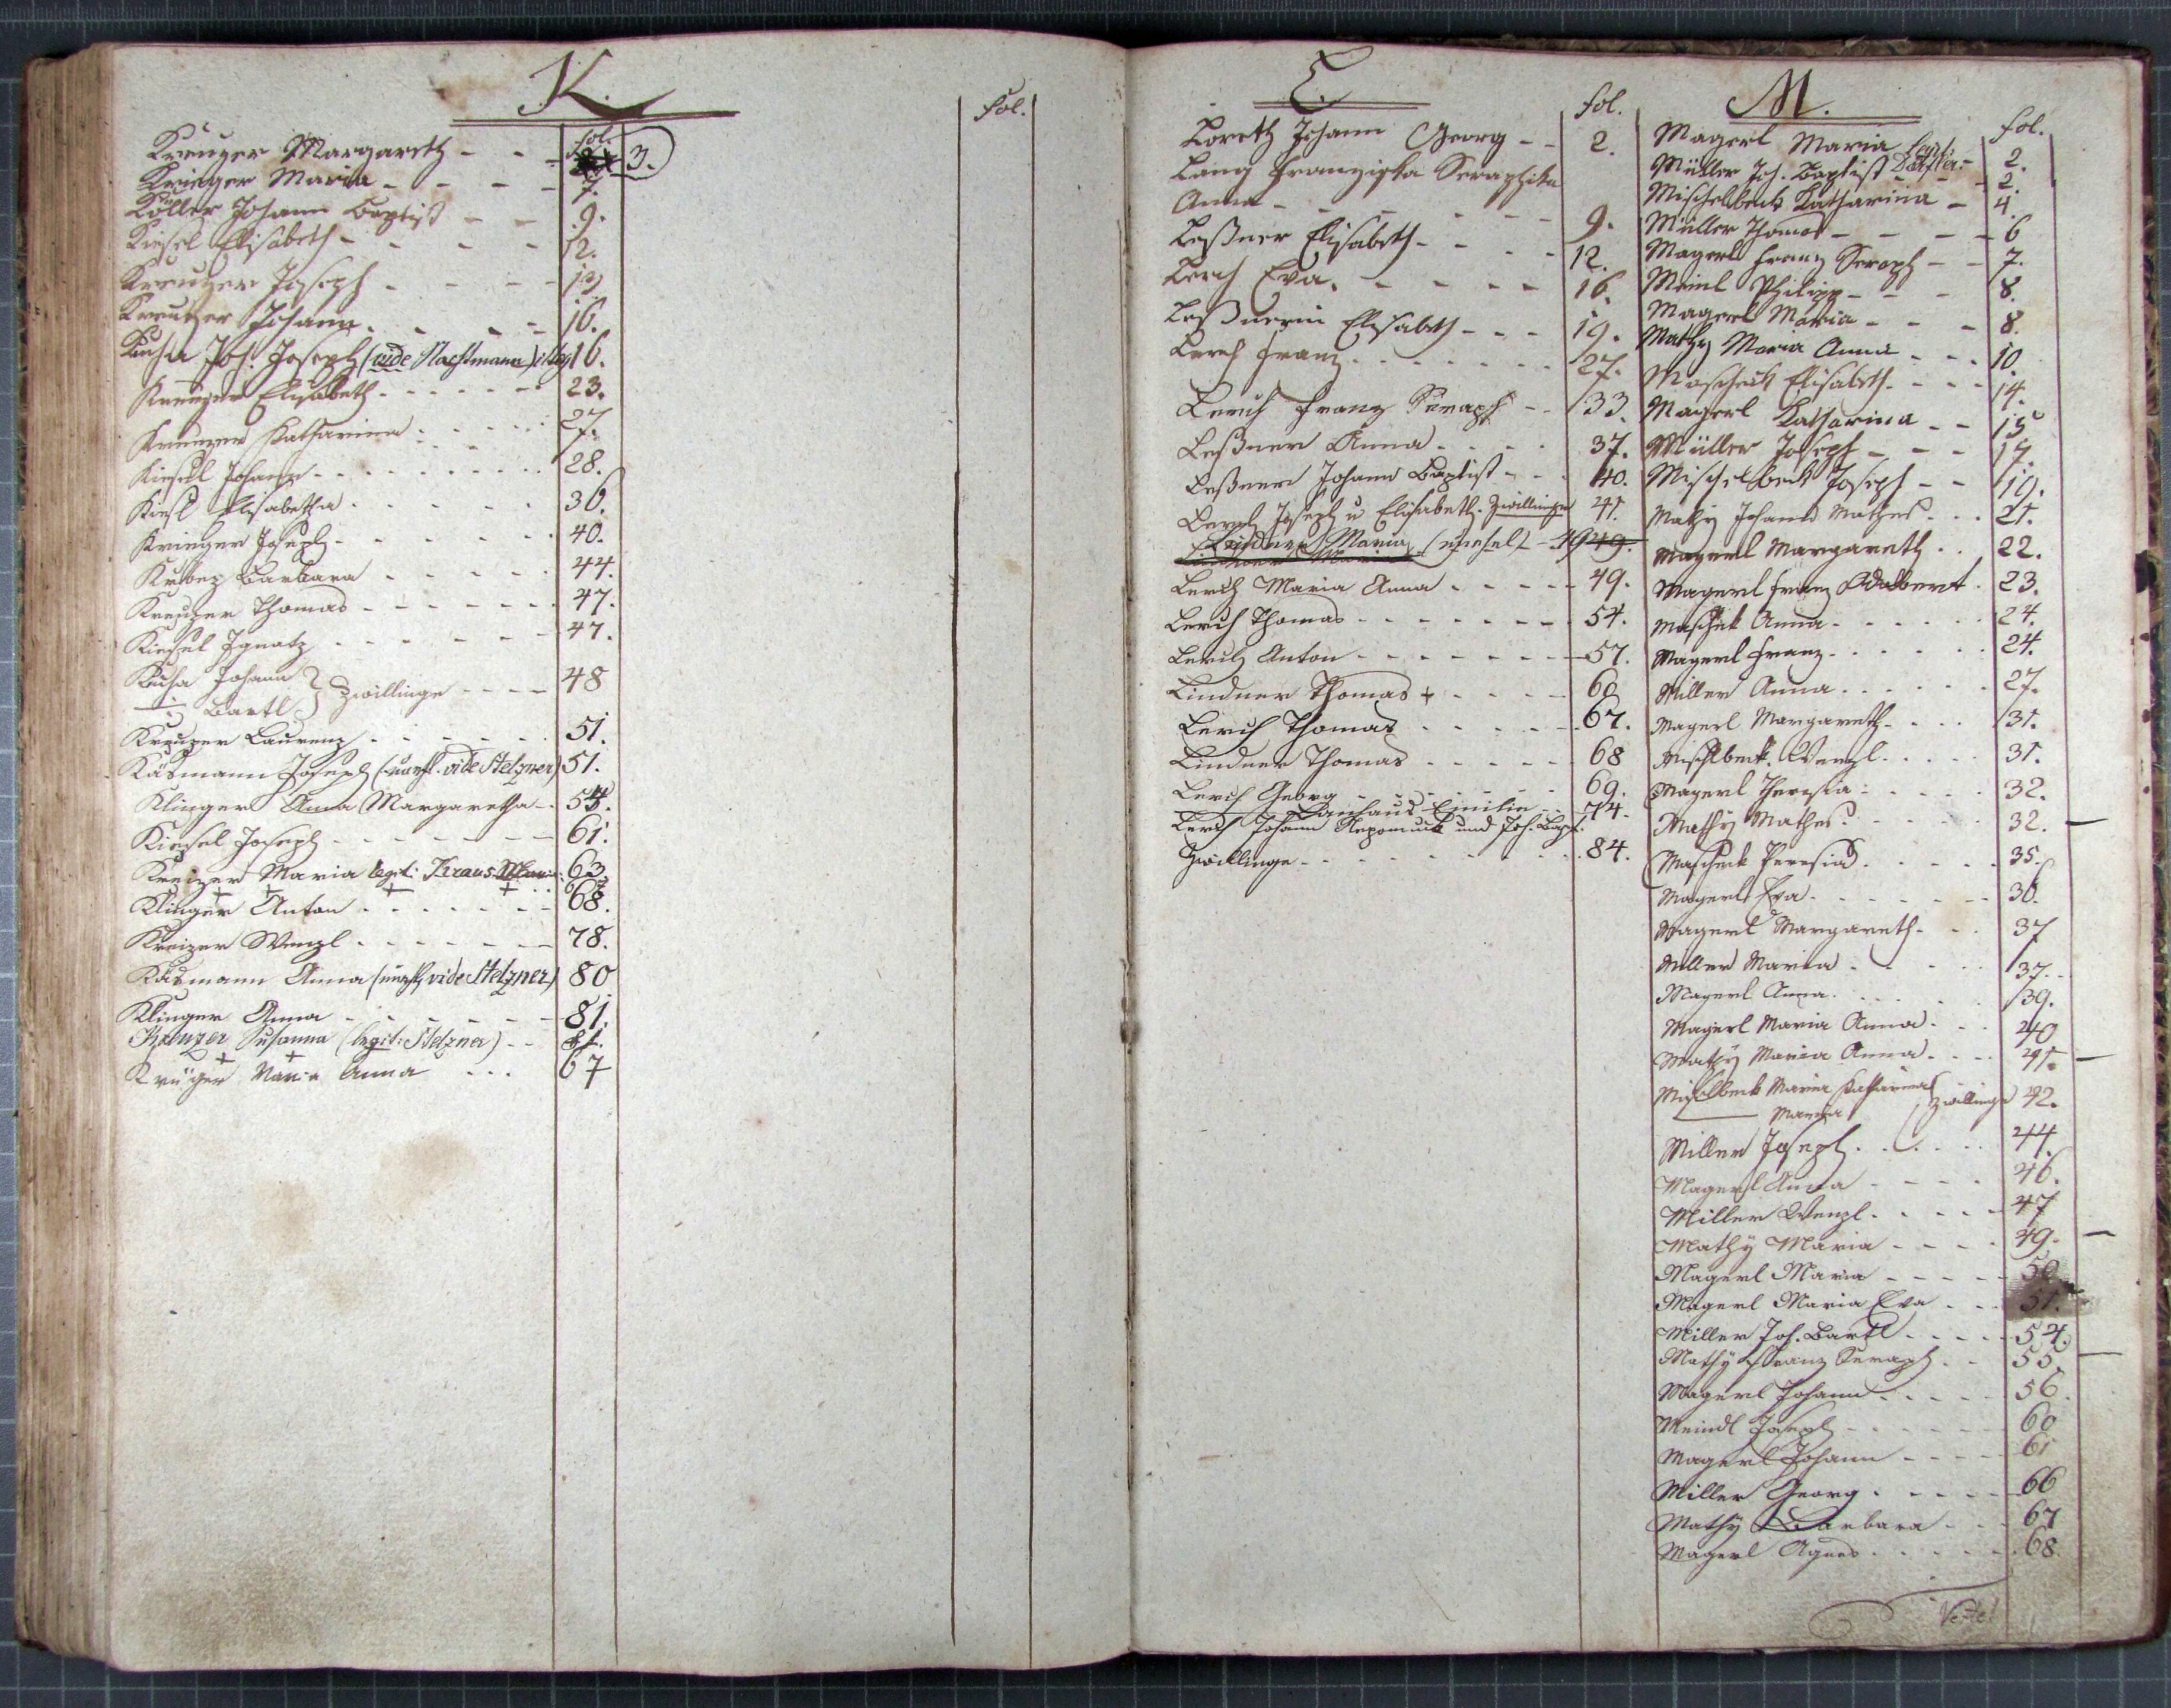 K.
fol.
fol.
Kreuzer Margareth - - 3.
Krieger Maria - - - - 7.
Köller Johann Baptist - - 9.
Kiesel Elisabeth - - - - 12.
Kreutzer Joseph - - - - 13
Kreutzer Johann. - - - 16.
Kucha Joh. Joseph (vide Nachtmann) 16.
Kreuzer Elisabeth - - - - - - 23.
Kreuzer Katharina . . . . . 27.
Kiesel Johann - - - - - - - - - 28.
Kiesl Elisabetha . . . . . . 36.
Krieger Joseph - - - - - - - 40.
Barbara . . . . . 44.
Kreuzer Thomas - - - - - - - 47.
Kiesel Ignatz - - - - - - 47.
Kucha Johann } Zwillinge - - - - 48
— u Bartl
Kreuzer Laurenz . . . . . . 51.
Käsmann Joseph (unehl. vide Stelzner) 51.
Klinger Anna Margaretha - . 54.
Kiesel Joseph - - - - - - - 61.
Kreizer Maria legit: Kraus 63.
Klinger Anton . . . . . . - - 68.
Kreizer Wenzl - - - - - - - 78.
Käsmann Anna (unehl. vide Stelzner) 80
Klinger Anna - - - - - - 81.
Kreuzer Susanna (legit: Stelzner) - - 81.
Krüger Maria Anna . . . 67
L.
fol.
Loretz Johann Georg - - 2.
Lang Franziska Seraphika
Anna - - - - - - - 9.
Leßner Elisabeth - - - - 12.
Lerch Eva. - - - - - 16.
Leßnerin Elisabeth - - - 19.
Lerch Franz - - - - - - - 27.
Lerch Franz Seraph - - 33.
Leßner Anna . . . . 37.
Leßner Johann Baptist - - . 40.
Lerch Joseph u Elisabeth. Zwillinge 41.
Lindner Maria 49.
Lerch Maria Anna . - - - - 49.
Lerch Thomas - - - - - - - 54.
Lerch Anton - - - - - - - 57.
Lindner Thomas + - - - - 60
Lerch Thomas . . . - - - 67.
Lindner Thomas . - - - - - 68
Lerch Georg - - - - - - 69.
Emilie - - 74.
Lerch Johann Nepomuck und Joh. Bapt.
Zwillinge - - - - - - - - - 84.
M.
fol.
Magerl Maria 2.
Müller Joh. Baptist - 2.
Mischelbeck Katharina - 4.
Müller Thomas - - - - 6
Magerl Franz Seraph - - 7.
Meinl Philipp - - - 8.
Magerl Maria - - - 8.
Mathy Maria Anna - - - 10.
Mascheck Elisabeth - - - - 14.
Magerl Katharina - - 15
Müller Joseph - - - 17.
Mischelbeck Joseph - - 19.
Mathy Johann Mathes . . . 21.
Magerl Margareth . . 22.
Magerl Franz Adalbert . 23.
Maschek Anna - - - - - 24.
Magerl Franz - . . . . . 24.
Miller Anna . . . . . . 27.
Magerl Margareth . . . . 31.
Mischlbeck Wenzl . . . . . 31.
Magerl Theresia . - - - - 32.
Mathy Mathes . - - - - - 32. —
Mascheck Theresia . . . . . 35.
Magerl Eva . . . . . - - 36.
Magerl Margareth - . . 37
Miller Maria . - . . . . 37. .
Magerl Anna . . . . . . 39.
Magerl Maria Anna . . . 40
Mathy Maria Anna . . . . 41. —
Mischlbeck Maria Katharina } Zwillinge 42.
— Maria
Miller Joseph . . . . . . 44.
Magerl Anna - - - - . 46.
Miller Wenzl . - - - - 47
Mathy Maria - - - - . 49. —
Magerl Maria - - - - - 50
Magerl Maria Eva . . . 51.
Miller Joh. Bartl . - - - - 54.
Mathy Franz Seraph . . 55. —
Magerl Johann . . . . . 56.
Meindl Joseph - - - - - 60
Magerl Johann - - - - - 61
Miller Georg . - - - - 66
Mathy Barbara - - - 67
Magerl Agnes . . . . . . 68
Verte!